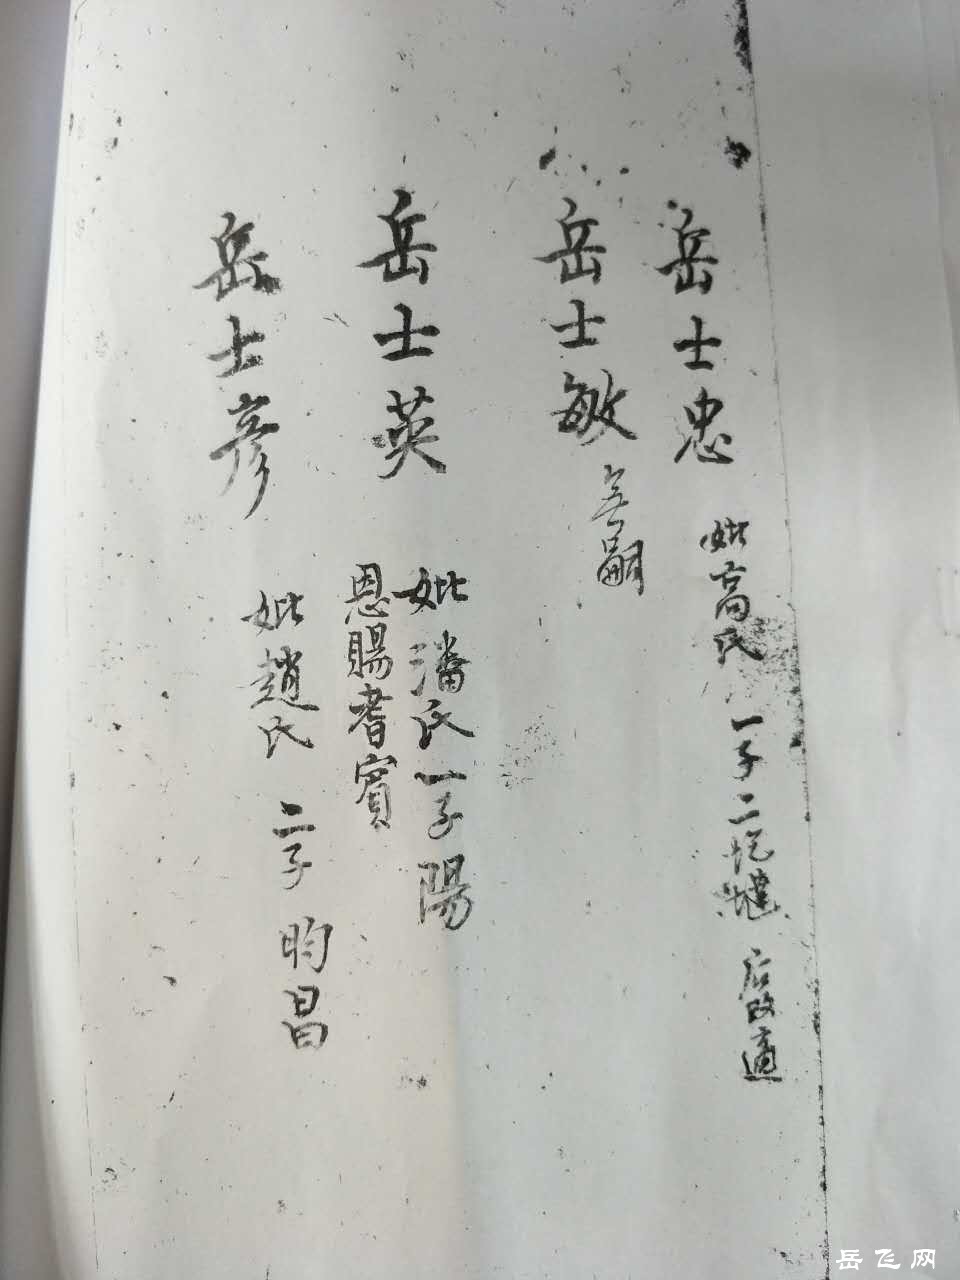 岳士忠 妣高氏 一子二圪㙻 后改適
岳士敏 無嗣
岳士英 妣潘氏 一子 陽
恩賜耆賓
岳士彥 妣趙氏 二子 昀 昌
岳飞网